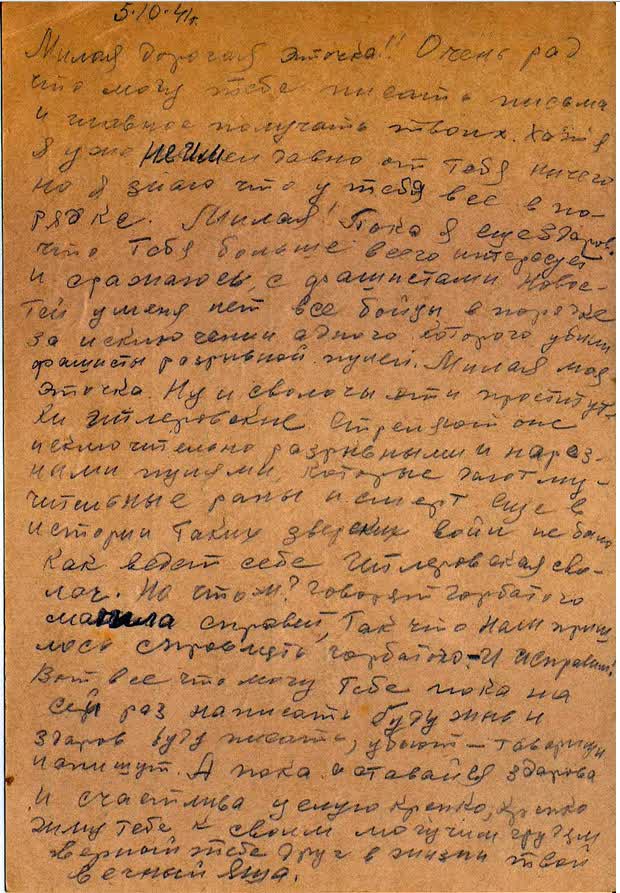 5.10.41г.
Милая дорогая Эточка!! Очень рад
что могу тебе писать письма
и главное получать твоих. Хотя
я уже не имел давно от тебя ничего
но я знаю что у тебя все в по-
рядке. Милая! Пока я еще здоров.
что тебя больше всего интересует
и сражаюсь с фашистами Новос-
тей у меня нет все бойцы в порядке
за исключении одного которого убили
фашисты разрывной пулей. Милая моя
Эточка. Ну и сволочы эти проститут-
ки гитлеровские Стреляют оне
исключително разрывными и
пулями, которые дают му-
чительные раны и смерт Еще в
истории таких зверских войн не было
как ведет себе Гитлеровская сво-
лач. Но что ж? Говорят горбатого
магила справит, Так что нам приш-
лось справлять горбатого. И исправим!
Вот все что могу тебе пока на
сей раз написать буду жив и
здаров буду писать, убьют – товарищи
напишут. А пока оставайся здарова
и счастлива целую крепко, крепко
жму тебе к своим могучим грудям
верный тебе друг в жизни твой
вечный Яша.